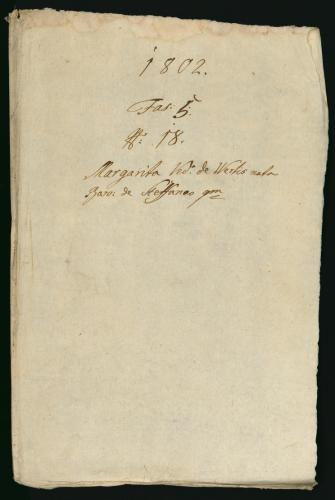 1802.
Fas: 5.
N: 18.
Margarita Vid. de Werks nata
Baro: de Steffaneo qm